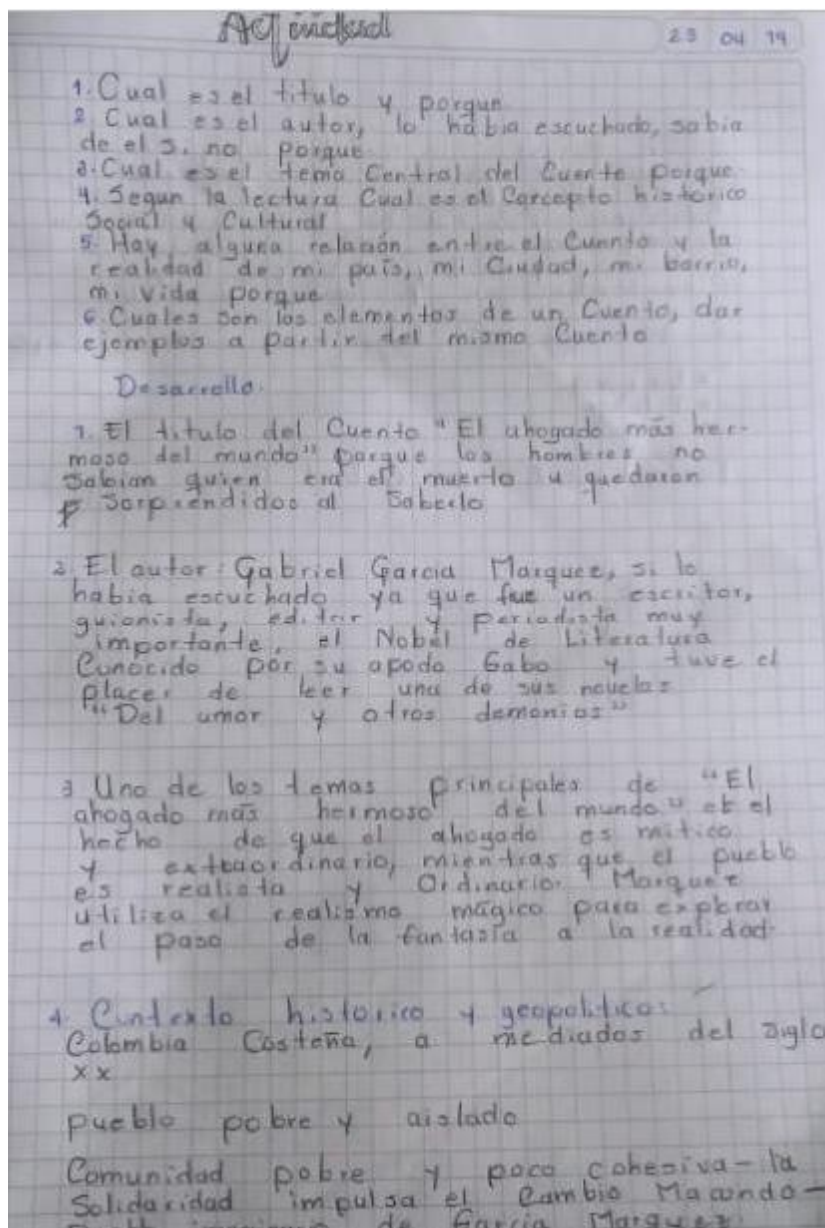 Actividad
23 04 19
1. Cual es el titulo y porque
2 Cual es el autor, lo habia escuchado, sabia
de el si no porque
3. Cual es el tema Central del Cuento porque
4. Segun la lectura Cual es el Concepto historico
Social y Cultural
5. Hay alguna relación entre el Cuento y la
realidad de mi país, mi Ciudad, mi barrio,
mi vida porque
6 Cuales son los elementos de un Cuento, dar
ejemplos a partir del mismo Cuento
Desarrollo.
1. El titulo del Cuento "El ahogado más her-
moso del mundo" porque los hombres no
Sabian quien era el muerto y quedaron
Sorprendidos al Saberlo
2 El autor: Gabriel Garcia Marquez, si lo
habia escuchado ya que fue un escritor,
guionista, editor y periodista muy
importante, el Nobel de Literatura
Conocido por su apodo Gabo y tuve el
placer de leer una de sus novelas
"Del amor y otros demonios"
3 Uno de los temas principales de "El
ahogado más hermoso del mundo" es el
hecho de que el ahogado es mitico
y extraordinario, mientras que el pueblo
es realista y Ordinario. Marquez
utiliza el realismo mágico para explorar
el paso de la fantasia a la realidad.
4. Contexto historico y geopolitico:
Colombia Costeña, a mediados del siglo
xx
pueblo pobre y aislado
Comunidad pobre y poco cohesiva - la
Solidaridad impulsa el Cambio Macondo -
de Garcia Marquez